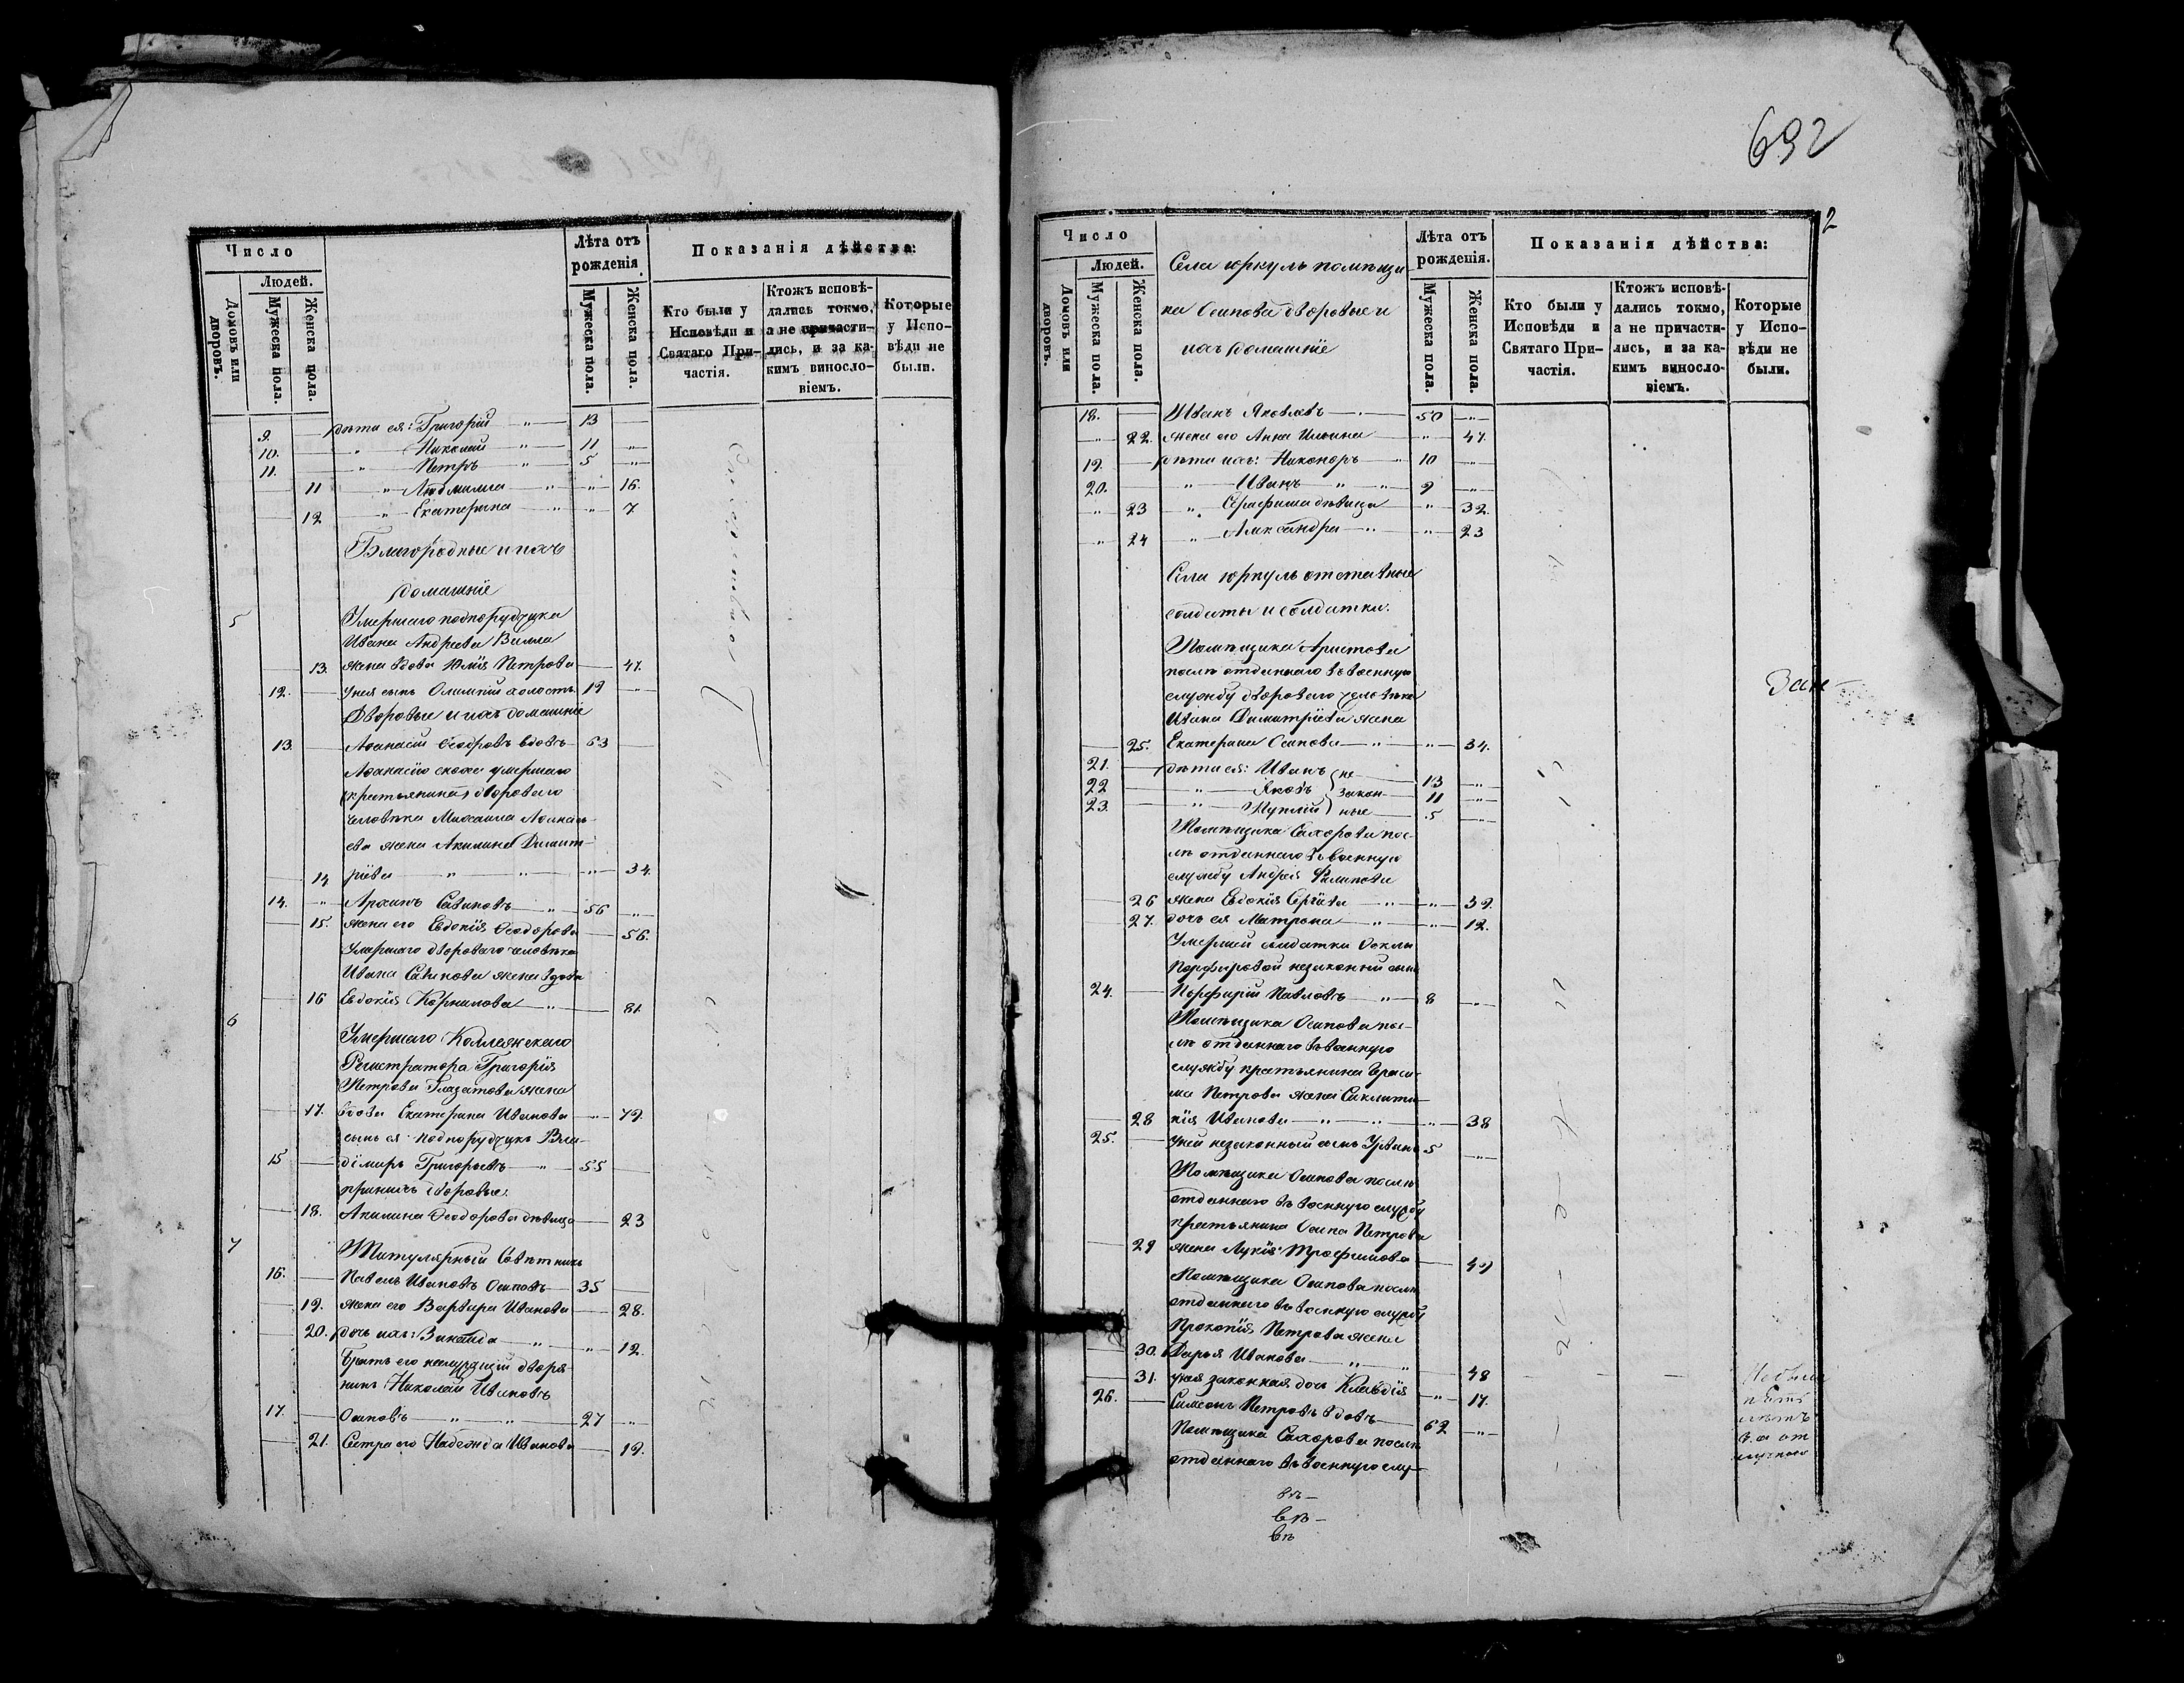 Число
Людей.
Домовъ или дворовъ.
Мужеска пола.
Женска пола.
Лѣта отъ рожденія
Мужеска пола.
Женска пола.
Показанія дѣйства:
Кто были у Исповѣди и Святаго Причастія.
Ктожъ исповѣдались токмо, а не причастились, и за какимъ винословіемъ.
Которые у Исповѣди не были.
9. дѣти ея: Григорій " 13
10. " Николай " 11 "
11. " Петръ " 5 "
11 " Людмила " " 16.
12 " Екатерина " " 7
Благородные и ихъ
домашніе
5 Умершаго подпоручика
Ивана Андреева
13. жена вдова Юлія Петрова 47.
12. у нея сынъ Олимпій холостъ 19
Дворовые и ихъ домашніе
13. Аѳанасій Ѳеодоровъ вдовъ 63
умершаго
дворового
человѣка Михаила Аѳанась-
ева жена Акилина Димит-
14 ріева " " " 34.
14. " Архипъ Савиновъ " 56 "
15. жена его Евдокія Ѳеодорова 56.
Умершаго двороваго человѣка
Ивана Савинова жена вдова
16 Евдокія Корнилова " 81.
6
Умершаго Коллежскаго
Регистратора Григорія
Петрова Глазатова жена
17. вдова Екатерина Иванова " 79.
сынъ ея подпоручикъ Вла-
15 диміръ Григорьевъ " 55
при нихъ дворовые.
18. Акилина Ѳеодорова дѣвица 23
7 Титулярный Совѣтникъ
16. Павелъ Ивановъ Осиповъ 35
19. жена его Варвара Иванова 28.
20. дочь ихъ: Зинаида " " 12.
Братъ его неслужащій дворя-
нинъ Николай Ивановъ
17. Осиповъ " " 27 "
21. Сестра его Надежда Иванова 19.
692
2
Число
Людей.
Домовъ или дворовъ.
Мужеска пола.
Женска пола.
Села Юркуль помѣщи-
ка Осипова дворовые и
ихъ домашніе
Лѣта отъ рожденія.
Мужеска пола.
Женска пола.
Показанія дѣйства:
Кто были у Исповѣди и Святаго Причастія.
Ктожъ исповѣдались токмо, а не причастились, и за какимъ винословіемъ.
Которые у Исповѣди не были.
18. Иванъ Яковлевъ 50 "
" 22. жена его Анна Ильина " 47.
19. дѣти ихъ: Никоноръ " 10
20. " Иванъ " " 9 "
" 23 " Серафима дѣвица " 32.
" 24 " Александра " " 23
Села Юркуль отставные
солдаты и солдатки.
Помѣщика Аристова
послѣ отданнаго въ военную
службу двороваго человѣка
Ивана Димитріева жена
25. Екатерина Осипова " " 34.
21. дѣти ея: Иванъ не- 13 "
22 " Яковъ закон- 11 "
23. " ные 5 "
Помѣщика Сахарова пос-
лѣ отданнаго въ военную
службу Андрея Филипова
26 жена Евдокія Сергіева " " 39.
27. дочь ея Матрона " " 12.
Умершей солдатки Ѳеклы
Порфировой незаконный сынъ
24. Порфирій Павловъ " 8 "
Помѣщика Осипова пос-
лѣ отданнаго въ военную
службу крестьянина Гераси-
ма Петрова жена Саклити-
28 кія Иванова " " " 38
25. у ней незаконный сынъ 5 "
Помѣщика Осипова послѣ
отданнаго въ военную службу
крестьянина Осипа Петрова
29 жена Лукія Трофимова 49
Помѣщика Осипова послѣ
отданнаго въ военную службу
Прокопія Петрова жена
30. Дарья Иванова " " 48
31. у нея законная дочь Клавдія " 17.
26. Симеонъ Петровъ вдовъ 62 "
Помѣщика Сахарова послѣ
отданнаго въ военную слу-